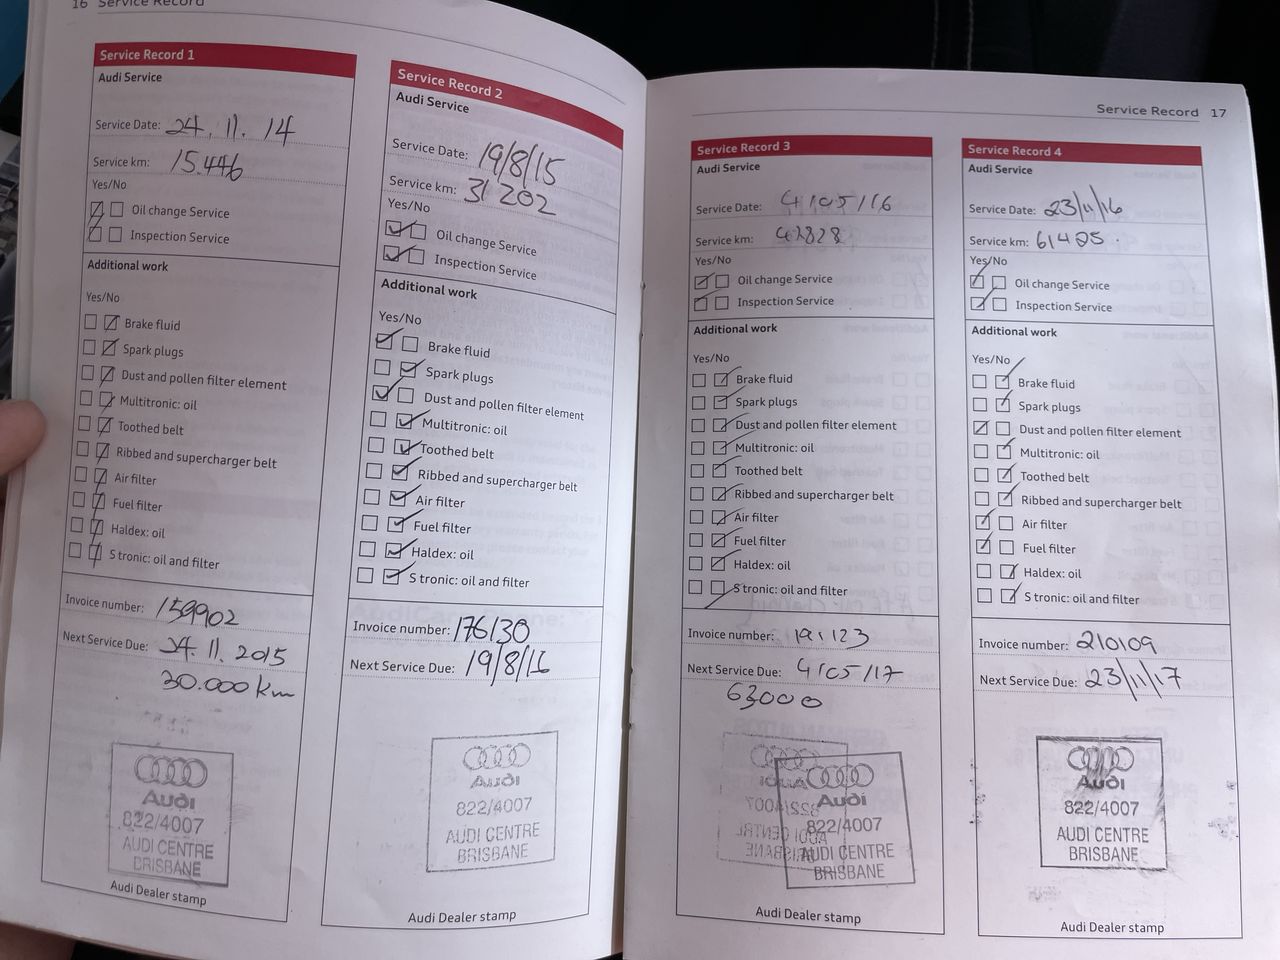 16 Service Record
Service Record 1
Audi Service
Service Date: 24. 11. 14
Service km: 15.446
Yes/No
Oil change Service
Inspection Service
Additional work
Yes/No
Brake fluid
Spark plugs
Dust and pollen filter element
Multitronic: oil
Toothed belt
Ribbed and supercharger belt
Air filter
Fuel filter
Haldex: oil
S tronic: oil and filter
Invoice number: 159902
Next Service Due: 24. 11. 2015
30.000 km
Audi
822/4007
AUDI CENTRE
BRISBANE
Audi Dealer stamp
Service Record 2
Audi Service
Service Date: 19/8/15
Service km: 31 202
Yes/No
Oil change Service
Inspection Service
Additional work
Yes/No
Brake fluid
Spark plugs
Dust and pollen filter element
Multitronic: oil
Toothed belt
Ribbed and supercharger belt
Air filter
Fuel filter
Haldex: oil
S tronic: oil and filter
Invoice number: 176130
Next Service Due: 19/8/16
Audi
822/4007
AUDI CENTRE
BRISBANE
Audi Dealer stamp
Service Record 17
Service Record 3
Audi Service
Service Date: 4/05/16
Service km:
Yes/No
Oil change Service
Inspection Service
Additional work
Yes/No
Brake fluid
Spark plugs
Dust and pollen filter element
Multitronic: oil
Toothed belt
Ribbed and supercharger belt
Air filter
Fuel filter
Haldex: oil
S tronic: oil and filter
Invoice number:
Next Service Due: 4/05/17
63000
Audi
822/4007
AUDI CENTRE
BRISBANE
Audi Dealer stamp
Service Record 4
Audi Service
Service Date: 23/11/16
Service km: 61425
Yes/No
Oil change Service
Inspection Service
Additional work
Yes/No
Brake fluid
Spark plugs
Dust and pollen filter element
Multitronic: oil
Toothed belt
Ribbed and supercharger belt
Air filter
Fuel filter
Haldex: oil
S tronic: oil and filter
Invoice number: 210109
Next Service Due: 23/11/17
Audi
822/4007
AUDI CENTRE
BRISBANE
Audi Dealer stamp